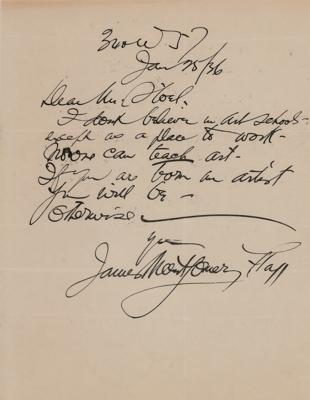 Jan 25/36
Dear Mr.
I dont believe in art schools -
except as a place to work -
No one can teach art -
If you are born an artist
you will be -
otherwise
yours
James Montgomery Flagg